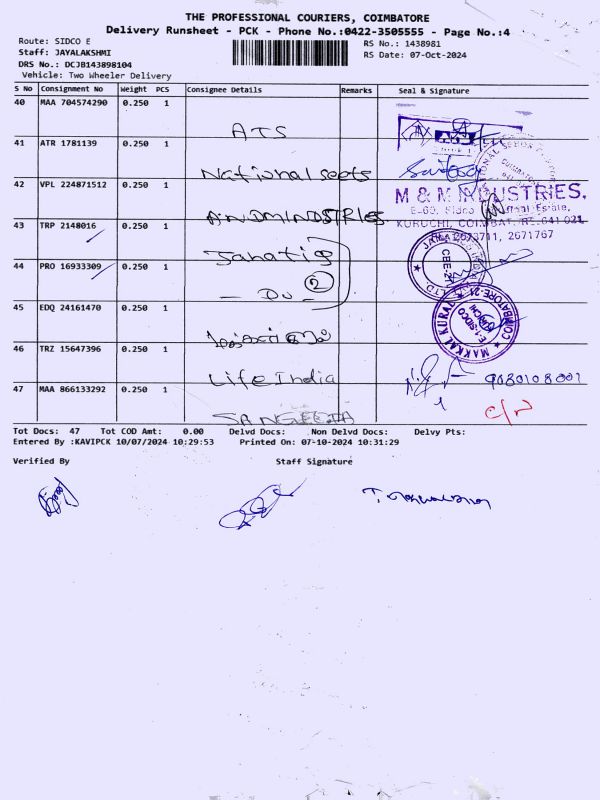 THE PROFESSIONAL COURIERS, COIMBATORE
Delivery Runsheet - PCK - Phone No.:0422-3505555 - Page No.:4
Route: SIDCO E
RS No.: 1438981
Staff: JAYALAKSHMI
RS Date: 07-Oct-2024
DRS No.: DCJB143898104
Vehicle: Two Wheeler Delivery
S No Consignment No Weight PCS Consignee Details Remarks Seal & Signature
40 MAA 704574290 0.250 1 ATS
41 ATR 1781139 0.250 1 National seets
42 VPL 224871512 0.250 1
M & M INDUSTRIES,
KURUCHI, COIMBATORE-641 021
2673711, 2671767
43 TRP 2148016 0.250 1
44 PRO 16933309 0.250 1 - Du - 2
45 EDQ 24161470 0.250 1 மக்கள் குரல்
MAKKAL KURAL COIMBATORE-21
46 TRZ 15647396 0.250 1 Life India 9080108001
47 MAA 866133292 0.250 1 SANGEETA
Tot Docs: 47 Tot COD Amt: 0.00 Delvd Docs: Non Delvd Docs: Delvy Pts:
Entered By :KAVIPCK 10/07/2024 10:29:53 Printed On: 07-10-2024 10:31:29
Verified By Staff Signature